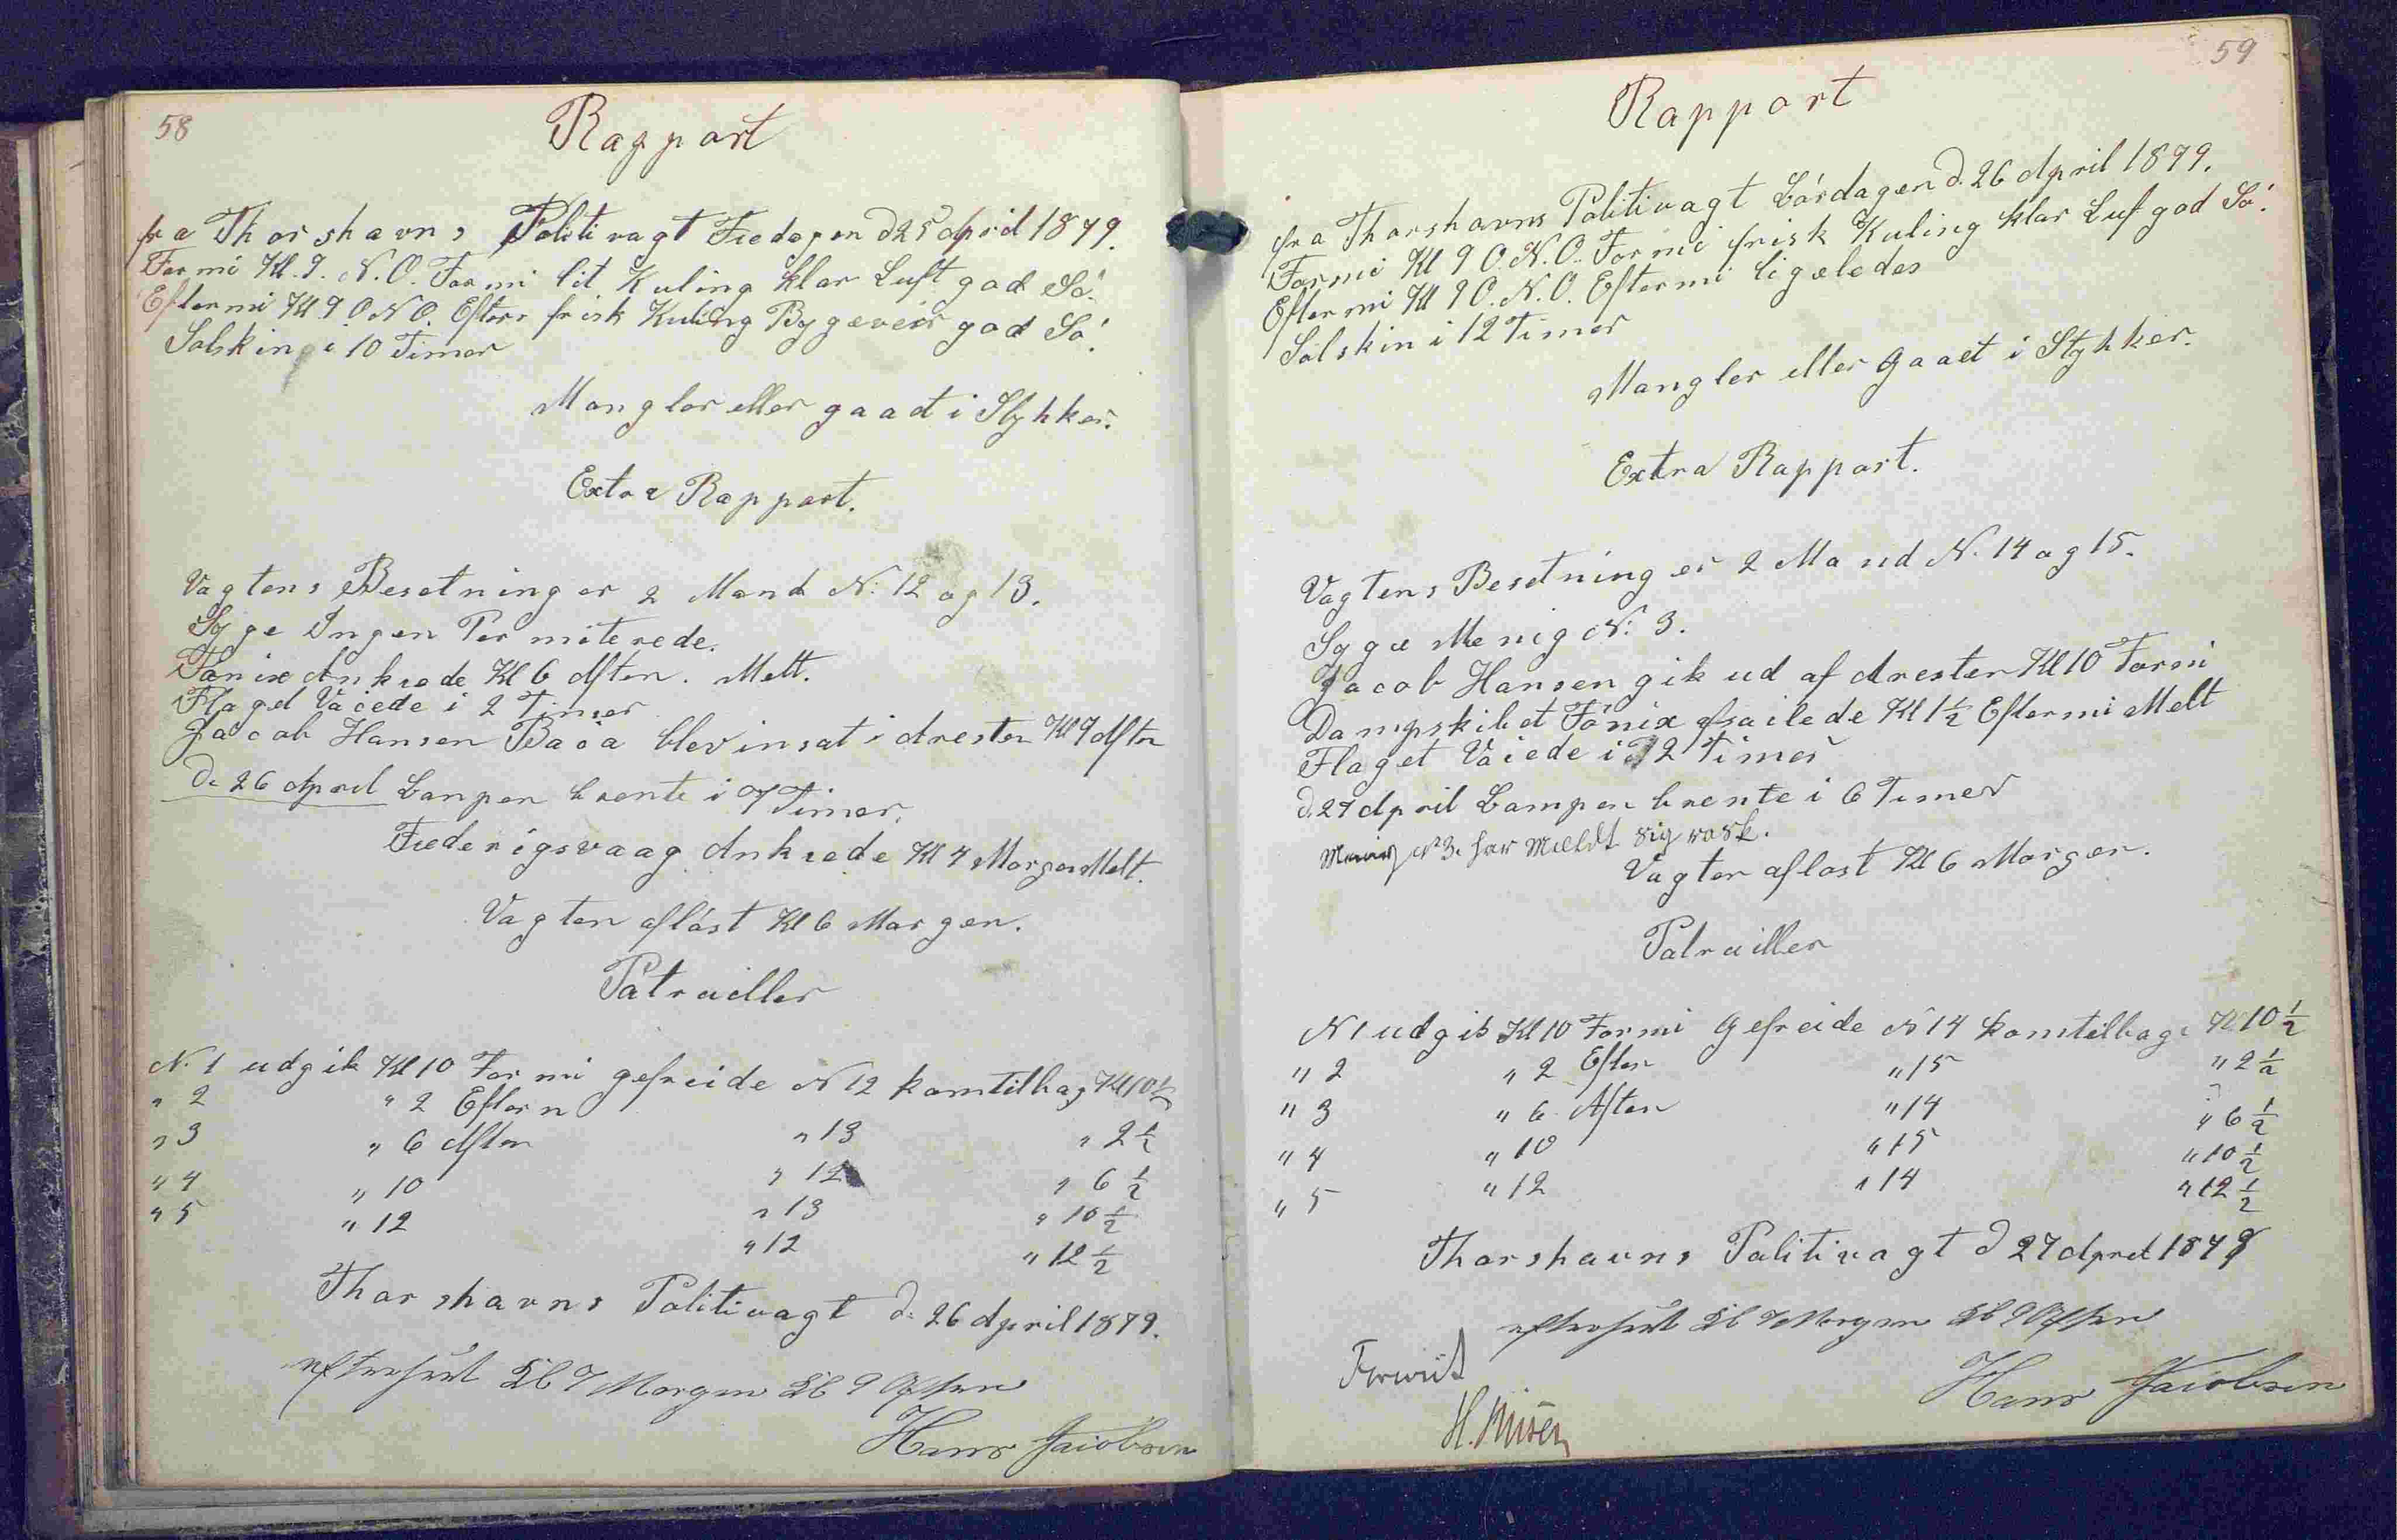 58
Rapport
fra Thorshavns Politivagt Fredagen d 25 April 1879.
Formi Kl. 9. N.O. Formi lit Kuling klar Luft god Sö.
Eftermi Kl 9 O N O. Efterm frisk Kuling Bygeveir god Sö.
Solskin i 10 Timer
Mangler eller gaaet i Stykker.
Extra Rapport.
Vagtens Besetning er 2 Mand N: 12 og 13.
Syge Ingen Permiterede.
Fönix Ankrede Kl 6 Aften. Melt.
Flaget Vaiede i 2 Timer
Jacob Hansen blev insat i Aresten Kl 7 Aften
d. 26 April Lampen brente i 7 Timer.
Frederigsvaag Ankrede Kl 4 Morgen Melt.
Vagten aflöst Kl 6 Morgen.
Patrailler
N. 1 udgik Kl 10 Formi gefreide N 12 komtilbag Kl 10 1/2
" 2 " 2 Eftern
" 3 " 6 Aften " 13 " 2 1/2
" 4 " 10 " 12 " 6 1/2
" 5 " 12 " 13 " 10 1/2
" 12 " 12 1/2
Thorshavns Politivagt d. 26 April 1879.
efterseet Kl 7 Morgen Kl 9 Aften
Hans Jacobsen
59
Rapport
fra Thorshavns Politivagt Lördagen d. 26 April 1879.
Formi Kl 9 O.N.O. Formi frisk Kuling klar Luf god Sö.
Eftermi Kl 9 O.N.O. Eftermi ligeledes
Solskin i 12 Timer
Mangler eller Gaaet i Stykker.
Extra Rapport.
Vagtens Besetning er 2 Mand N. 14 og 15.
Syge Menig N: 3.
Jacob Hansen gik ud af Aresten Kl 10 Formi
Dampskibet Fönix afsailede Kl 1 1/2 Eftermi Melt
Flaget Vaiede i 12 Timer
d. 27 April Lampen brente i 6 Timer
Menig N 3. har Meldt sig rask.
Vagten aflöst Kl 6 Morgen.
Patrailler
N 1 udgik Kl 10 Formi Gefreide N 14 komtilbage Kl 10 1/2
" 2 " 2 Efter " 15 " 2 1/2
" 3 " 6 Aften " 14 " 6 1/2
" 4 " 10 " 15 " 10 1/2
" 5 " 12 " 14 " 12 1/2
Thorshavns Politivagt d 27 April 1879
efterseet Kl 7 Morgen Kl 9 Aften
Forevist
Hans Jacobsen